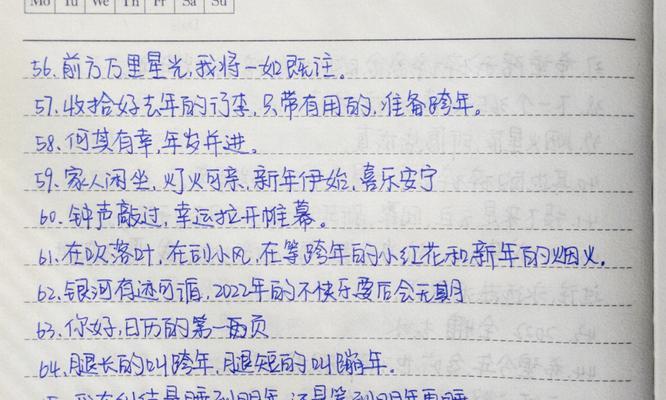 Mo Tu We Th Fr Sa Su
56. 前方万里星光，我将一如既往。
57. 收拾好去年的行李，只带有用的，准备跨年。
58. 何其有幸，年岁并进。
59. 家人闲坐，灯火可亲，新年伊始，喜乐安宁
60. 钟声敲过，幸运拉开帷幕。
61. 在吹落叶，在刮小风，在等跨年的小红花和新年的烟火。
62. 银河有迹可循，2022年的不快乐要后会无期
63. 你好，日历的第一页
64. 腿长的叫跨年，腿短的叫蹦年。